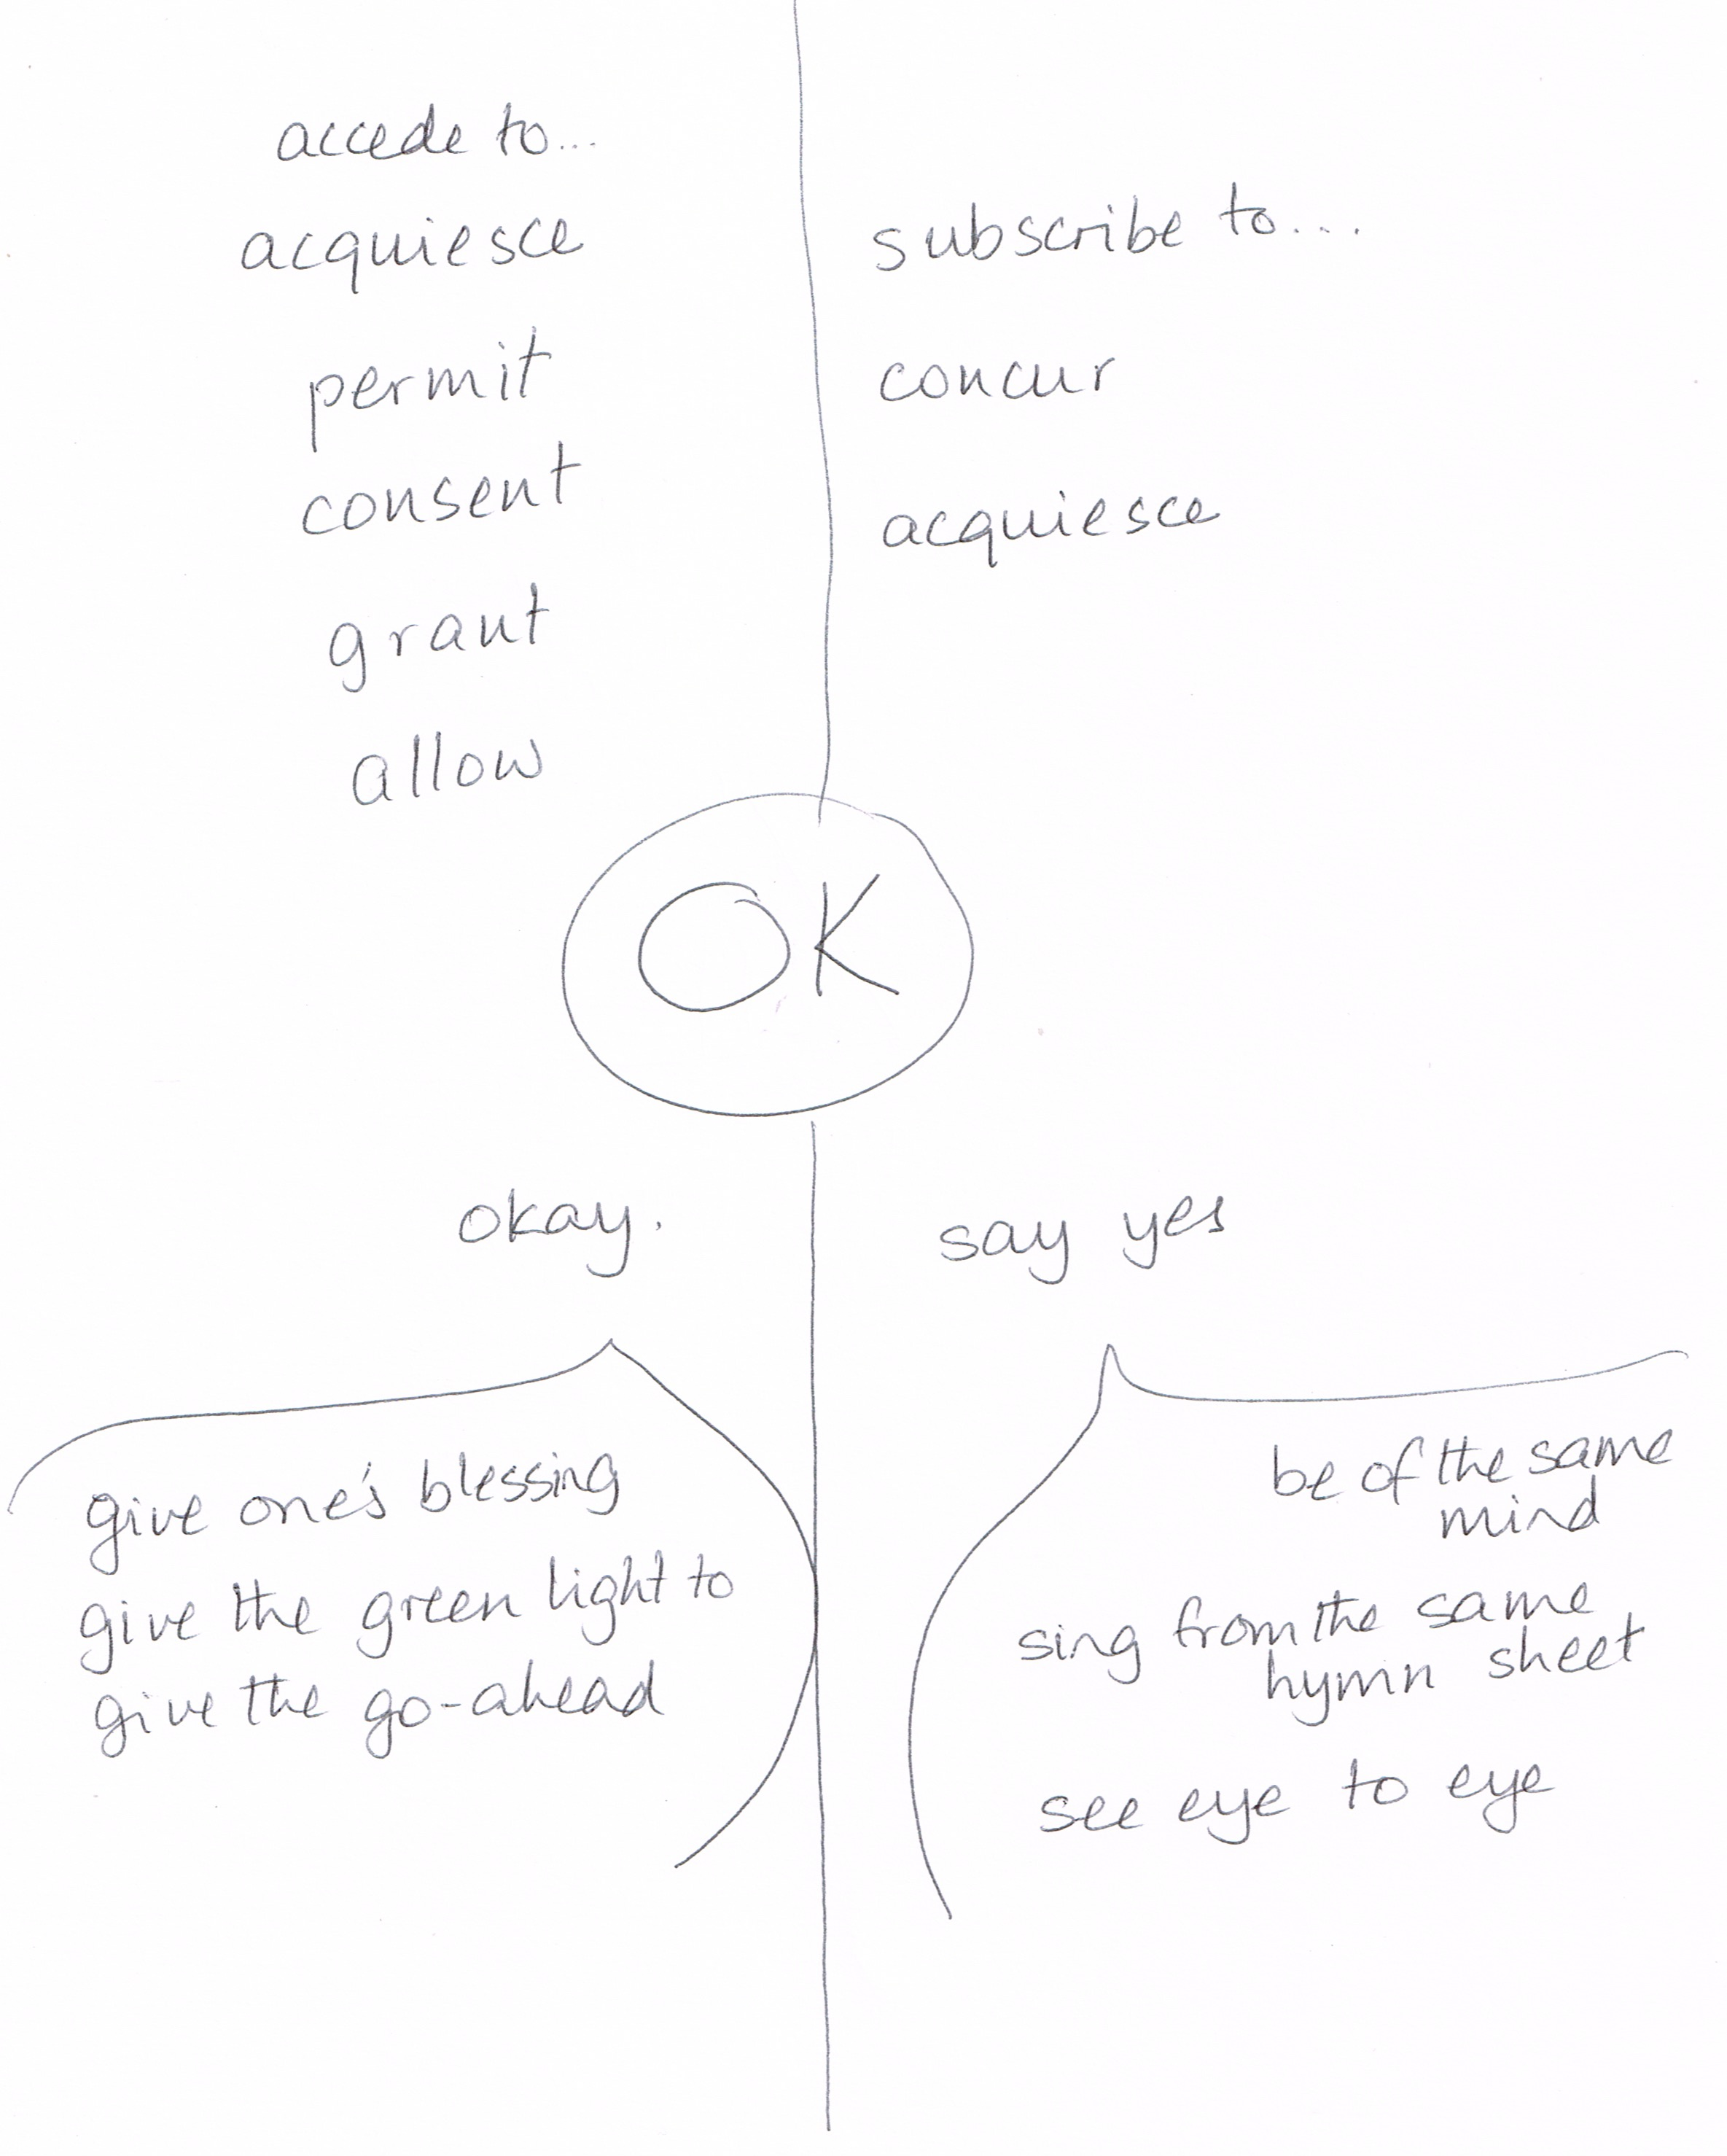 accede to...
acquiesce
permit
consent
grant
allow
subscribe to....
concur
acquiesce
OK
okay.
give one's blessing
give the green light to
give the go-ahead
say yes
be of the same
mind
sing from the same
hymn sheet
see eye to eye